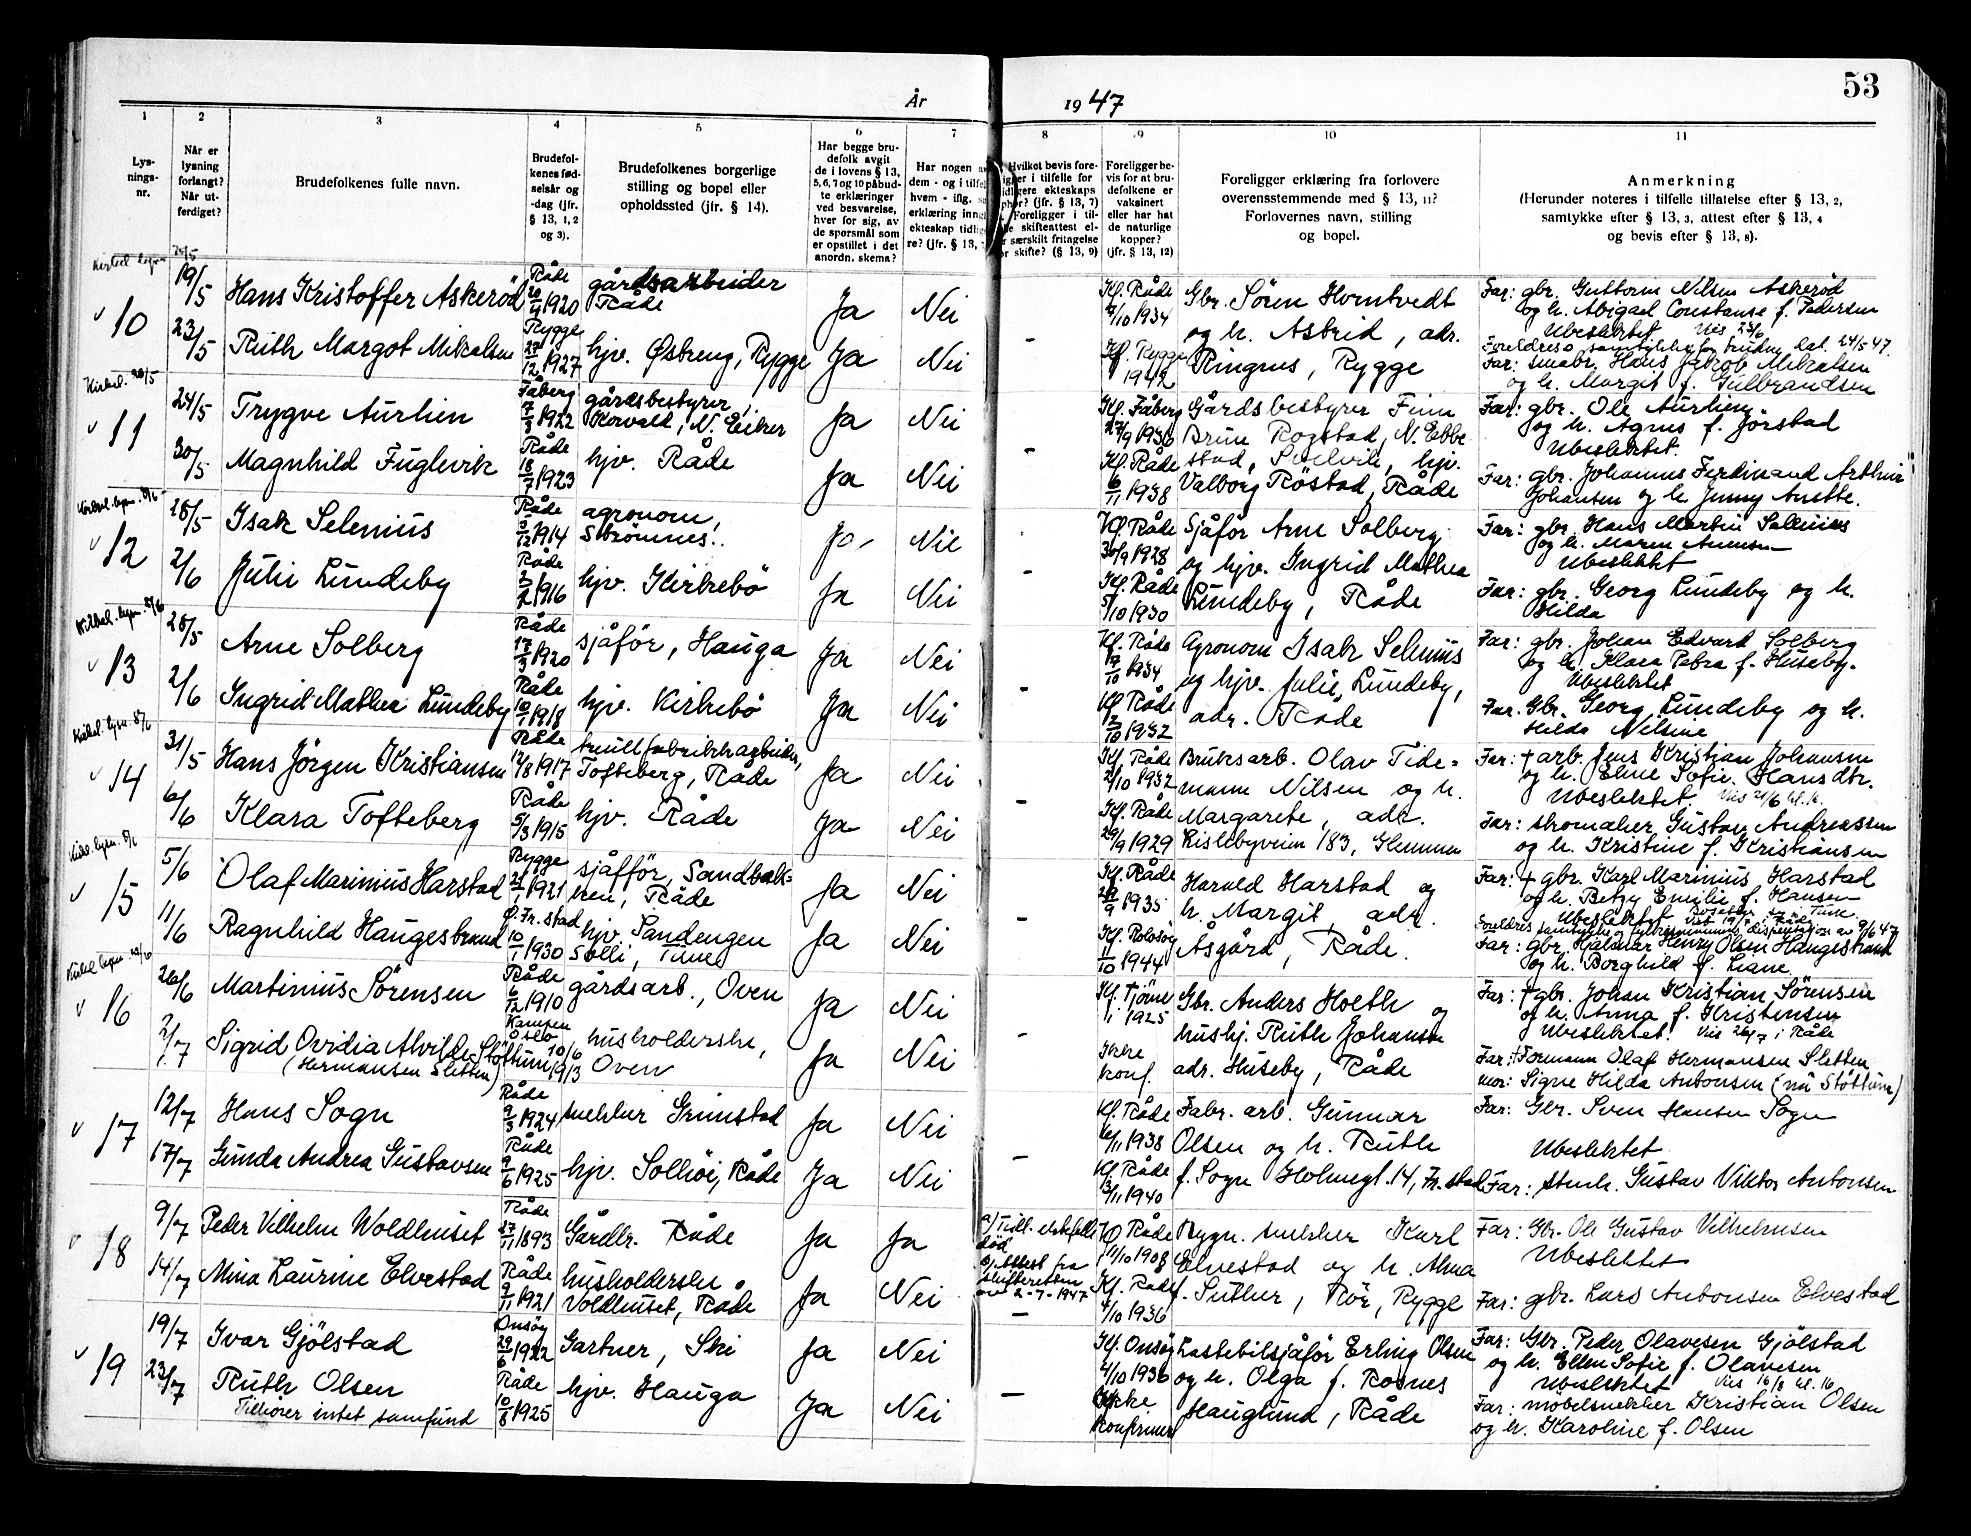 53
År 1947
1
2
3
4
5
6
7
8
9
10
11
Lys-
nings-
nr.
Når er
lysning
forlangt?
Når ut-
ferdiget?
Brudefolkenes fulle navn.
Brudefol-
kenes fød-
selsår og
-dag (jfr.
§ 13, 1, 2
og 3).
Brudefolkenes borgerlige
stilling og bopel eller
opholdssted (jfr. § 14).
Har begge bru-
defolk avgit
de i lovens § 13,
5, 6, 7 og 10 påbud-
te erklæringer
ved besvarelse,
hver for sig, av
de spørsmål som
er opstillet i det
anordn. skema?
Har nogen a
dem - og i tilfel
hvem - iflg. s
erklæring inng
ekteskap tidlig
re? (jfr. § 13,
Hvilket bevis fore-
ligger i tilfelle for
tidligere ekteskaps
ophør? (jfr. § 13, 7)
Foreligger i til-
felle skifteattest el-
ler særskilt fritagelse
for skifte? (§ 13, 9)
Foreligger be-
vis for at bru-
defolkene er
vaksinert
eller har hat
de naturlige
kopper?
(jfr. § 13, 12)
Foreligger erklæring fra forlovere
overensstemmende med § 13, 11?
Forlovernes navn, stilling
og bopel.
Anmerkning
(Herunder noteres i tilfelle tillatelse efter § 13, 2,
samtykke efter § 13, 3, attest efter § 13, 4
og bevis efter § 13, 8).
25/5
v 10
19/5 Hans Kristoffer Askerød Råde 20/4 1920 gårdsarbeider Råde Ja Nei
Kf. Råde 7/10 1934 Gbr. Sören Homtvedt
og h. Astrid, adr.
Far: gbr. Guttorm Nilsen Askerød
og h. Abigael Constanse f. Pedersen
Ubeslektet Vies 23/6
23/5 Ruth Margot Mikalsen Rygge 27/12 1927 hjv. Østeng, Rygge Ja Nei -
Kf. Rygge 1942 Ringnes, Rygge
Foreldres samtykke for bruden dat. 24/5 47.
Far: småbr. Hans Jakob Mikalsen
og h. Margit f. Gulbrandsen
Kirkel. 26/5
v 11
24/5 Trygve Aurlien Fåberg 7/3 1922 gårdsbestyrer, Korvald, N. Eiker Ja Nei
Kf. Fåberg 27/9 1936 Gårdsbestyrer Finn
Brun Rogstad, N. Ebbe
Far: gbr. Ole Aurlien
og h. Agnes f. Jörstad
Ubeslektet.
30/5 Magnhild Fuglevik Råde 18/7 1923 hjv. Råde Ja Nei -
Kf. Råde 6/11 1938 stad, Svelvik, hjv.
Valborg Röstad, Råde
Far: gbr. Johannes Ferdinand Arthur
Johansen og h. Jenny Anette.
Kirkel. lysn. 8/6
v 12
28/5 Isak Selenius Råde 5/12 1914 agronom, Strömnes. Ja Nei
Kf. Råde 30/9 1928 Sjåför Arne Solberg
og hjv. Ingrid Mathea
Far: gbr. Hans Martin Selenius
og h. Maren Arnesen
Ubeslektet
2/6 Julie Lundeby Råde 3/2 1916 hjv. Kirkebö Ja Nei -
Kf. Råde 5/10 1930 Lundeby, Råde
Far: gbr. Georg Lundeby og h.
Hilda
Kirkel. lysn. 8/6
v 13
28/5 Arne Solberg Råde 17/3 1920 sjåför, Hauga Ja Nei
Kf. Råde 1934 Agronom Isak Selenius
og hjv. Julie Lundeby,
Far: gbr. Johan Edvard Solberg
og h. Klara Petra f. Huseby.
Ubeslektet
2/6 Ingrid Mathea Lundeby Råde 10/1 1918 hjv. Kirkebö Ja Nei -
Kf. Råde 2/10 1932 adr. Råde
Far. Gbr. Georg Lundeby og h.
Hilda Nilsine
Kirkel. lysn. 8/6
v 14
31/5 Hans Jörgen Kristiansen Råde 17/8 1917 Tofteberg, Råde Ja Nei
Kf. Råde 2/10 1932 Bruksarb. Olav Tide-
mann Nilsen og h.
Far: + arb. Jens Kristian Johansen
og h. Eline Sofie Hansdtr.
Ubeslektet. Vies 21/6 kl. 16
6/6 Klara Tofteberg Råde 5/3 1915 hjv. Råde Ja Nei -
Kf. Råde 29/9 1929 Margarete, adr.
Kislebyveien 183, Glemmen
Far: stromaker Gustav Andreassen
og h. Kristine f. Kristiansen
Kirkel. lysn. 8/6
v 15
5/6 Olaf Marinius Harstad Rygge 21/1 1921 sjåför, Sandbak-
ken, Råde Ja Nei
Kf. Råde 29/9 1935 Harald Harstad og
h. Margit, adr.
Far: + gbr. Karl Marinius Harstad
og h. Betzy Emilie f. Hansen
Ubeslektet
11/6 Ragnhild Haugesbrand Ö. Fr.stad 10/1 1930 hjv. Sandengen
Solli, Tune Ja Nei
Kf. Rolvsöy 1/10 1944 Åsgård, Råde.
Foreldres samtykke og fylkesmannens dispensasjon av 9/6 47
Far: gbr. Hjalmar Henry Olsen Haugesbrand
og h. Borghild f. Liane
v 16
26/6 Martinius Sörensen Råde 6/12 1910 gårdsarb., Oven Ja Nei
Kf. Tjöme 1925 Gbr. Anders Holth og
hushj. Ruth Johansen
Far: + gbr. Johan Kristian Sörensen
og h. Anna f. Kristensen
Ubeslektet. Vies 26/7 i Råde
2/7 Sigrid Ovidia Alvilde Stöttum
(Hermansen Sletten) Kampen Oslo 10/6 1913 husholderske,
Oven Ja Nei -
Ikke konf. adr. Huseby, Råde
Far: + Formann Olaf Hermansen Sletten
mor: Signe Hilda Antonsen (nå Stöttum)
v 17
12/7 Hans Sogn Råde 9/3 1924 snekker Grimstad Ja Nei
Kf. Råde 6/11 1938 Fabr. arb. Gunnar
Olsen og h. Ruth
Far: Gbr. Sven Hansen Sogn
Ubeslektet
17/7 Gunda Andrea Gustavsen Råde 9/6 1925 hjv. Solhöi, Råde Ja Nei -
Kf. Råde 3/11 1940 f. Sogn Holmegt. 14, Fr.stad
Far: stenh. Gustav Viktor Antonsen
v 18
9/7 Peder Vilhelm Woldhuset Råde 27/11 1893 Gårdbr. Råde Ja Ja
a) Tidl. ektefelle
död
b) Attest fra
skifteretten
av 2-7-1947
Kf. Råde 11/10 1908 Bygn. snekker Karl
Elvestad og h. Alma
Far: Gbr. Ole Gustav Vilhelmsen
Ubeslektet
14/7 Mina Laurine Elvestad Råde 9/11 1921 husholderske
Voldhuset, Råde Ja Nei -
Kf. Råde 4/10 1936 f. Sutter, Rör, Rygge
Far: gbr. Lars Antonsen Elvestad
v 19
19/7 Ivar Gjölstad Onsöy 29/6 1922 Gartner, Ski Ja Nei
Kf. Onsöy 4/10 1936 Lastebilsjåför Erling Olsen
og h. Olga f. Rosnes
Far: Gbr. Peder Olavesen Gjölstad
og h. Ellen Sofie f. Olavesen
Ubeslektet Vies 16/8 kl. 16
23/7 Ruth Olsen
Tilhörer intet samfund Råde 10/8 1925 hjv. Hauga Ja Nei -
Ikke konfirmert Hauglund, Råde
Far: möbelsnekker Kristian Olsen
og h. Karoline f. Olsen